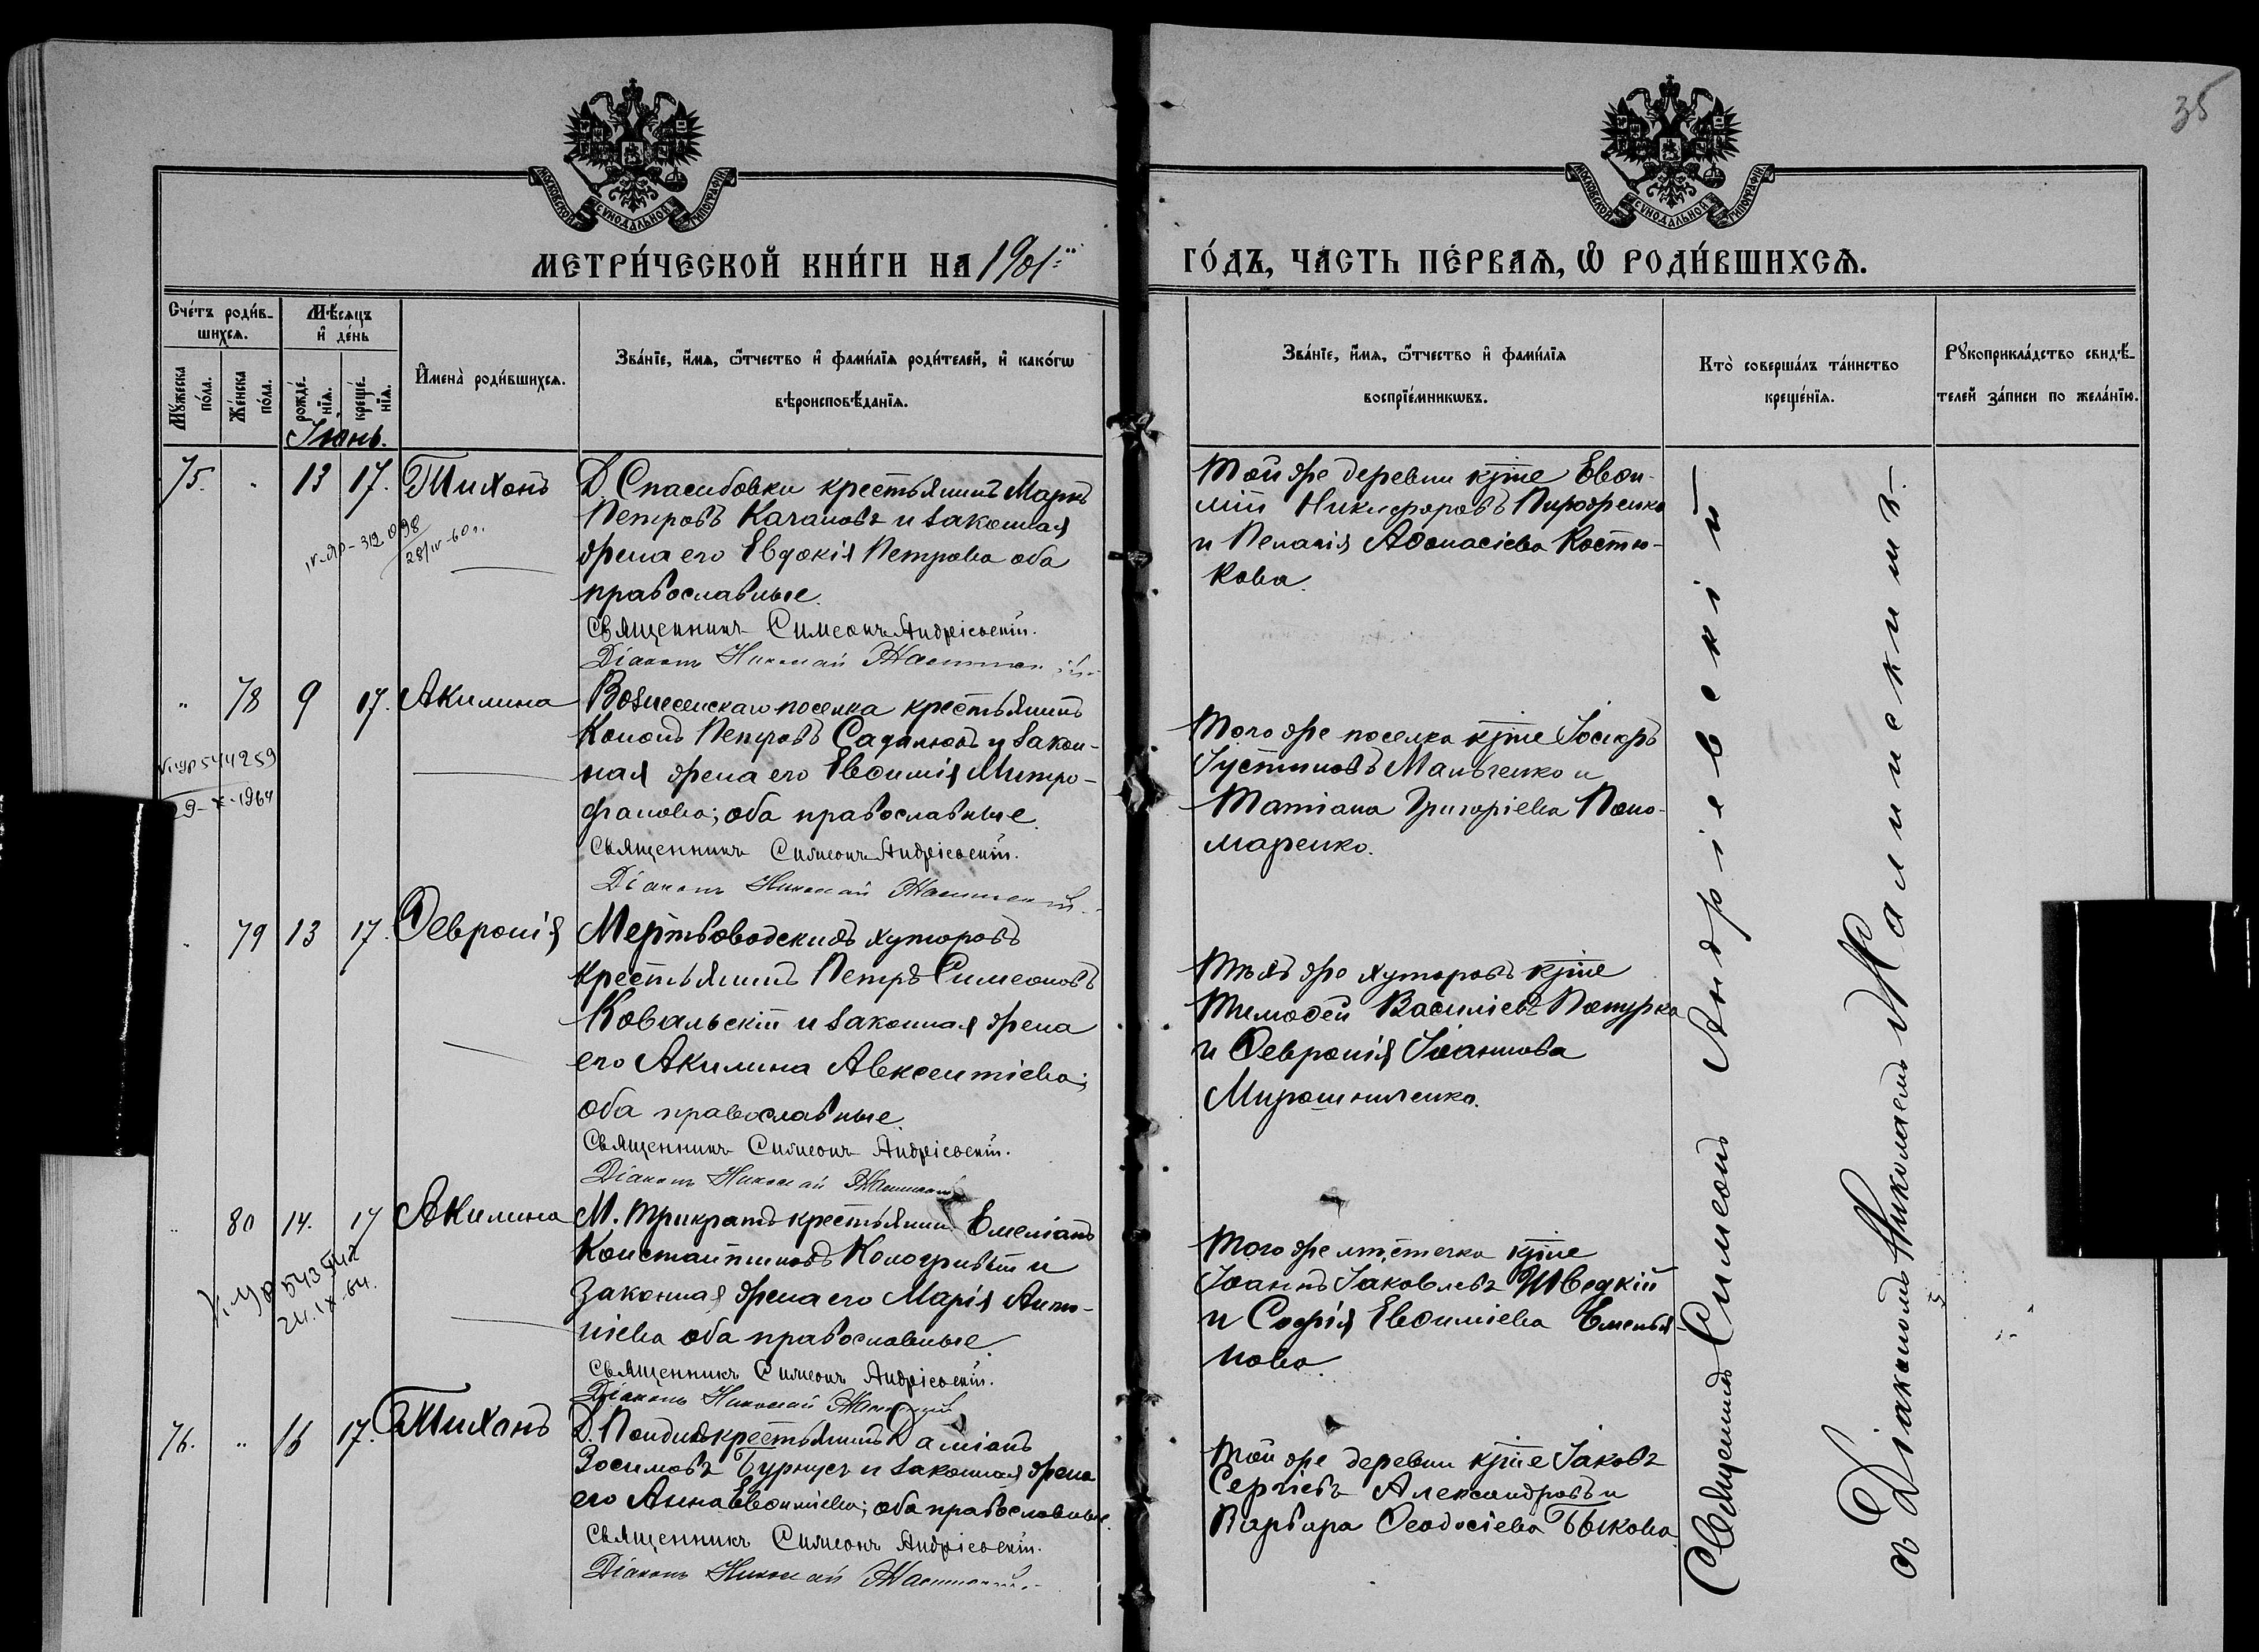 35
МОСКОВСКОЙ СѴНОДАЛЬНОЙ ТИПОГРАФІИ
МОСКОВСКОЙ СѴНОДАЛЬНОЙ ТИПОГРАФІИ
МЕТРИ́ЧЕСКОЙ КНИ́ГИ НА 1901й
ГО́ДЪ, ЧАСТЬ ПЕ́РВАѦ, Ѡ РОДИ́ВШИХСѦ.
Сче́тъ роди́в-
шихсѧ.
Мѣ́сѧцъ
и҆ де́нь
Мꙋ́жеска по́ла.
Же́нска по́ла.
рожде́-
нїѧ.
креще́-
нїѧ.
И҆мена̀ роди́вшихсѧ.
Зва́нїе, и҆́мѧ, ѻ҆́тчество и҆ фами́лїѧ роди́телей, и҆ како́гѡ
вѣроисповѣ́данїѧ.
Зва́нїе, и҆́мѧ, ѻ҆́тчество и҆ фами́лїѧ
воспрїе́мникѡвъ.
Кто̀ соверша́лъ та́инство
креще́нїѧ.
Рꙋкоприкла́дство свидѣ́-
телей за́писи по жела́нїю.
Іюнь.
75. " 13 17. Тихонъ
Д. Спасибовки крестьянинъ Маркъ
Петровъ Качановъ и законная
жена его Евдокія Петрова оба
православные.
Священникъ Симеонъ Андріевскій.
Діаконъ Николай
28/IV-60 г.
Той же деревни кр̃не Евѳи-
мій Никифоровъ
и Пелагія Аѳанасіева Костю-
кова.
" 78 9 17. Акилина
Вознесенскаго поселка крестьянинъ
Кононъ Петровъ Садалюкъ и закон-
ная жена его Евѳимія Митро-
фанова; оба православные.
Священникъ Симеонъ Андріевскій.
Діаконъ Николай
544259
29-X-1964
Того же поселка кр̃не Іосифъ
Іустиновъ Мальченко и
Татіана Григоріева Поно-
маренко.
" 79 13 17. Ѳевронія
Мертвоводскихъ хуторовъ
крестьянинъ Петръ Симеоновъ
Ковальскій и законная жена
его Акилина Авксентіева;
оба православные.
Священникъ Симеонъ Андріевскій.
Діаконъ Николай
Тѣхъ же хуторовъ кр̃не
Тимоѳей Василіевъ
и Ѳевронія Іоаннова
Мирошниченко.
" 80 14. 17 Акилина
М. Трикратъ крестьянинъ Емеліанъ
Константиновъ Кологривый и
законная жена его Марія Анто-
ніева оба православные.
Священникъ Симеонъ Андріевскій.
Діаконъ Николай
24.IX-64.
Того же мѣстечка кр̃не
Іоаннъ Іаковлевъ Шведкій
и Софія Евѳиміева Емелья-
нова.
76. " 16 17. Тихонъ
крестьянинъ Даміанъ
Зосимовъ Бурнусъ и законная жена
его Анна Евѳиміева; оба православные.
Священникъ Симеонъ Андріевскій.
Діаконъ Николай
Той же деревни кр̃не Іаковъ
Сергіевъ Александровъ и
Варвара Ѳеодосіева Быкова.
Священникъ Симеонъ Андріевскій
съ Діакономъ Николаемъ